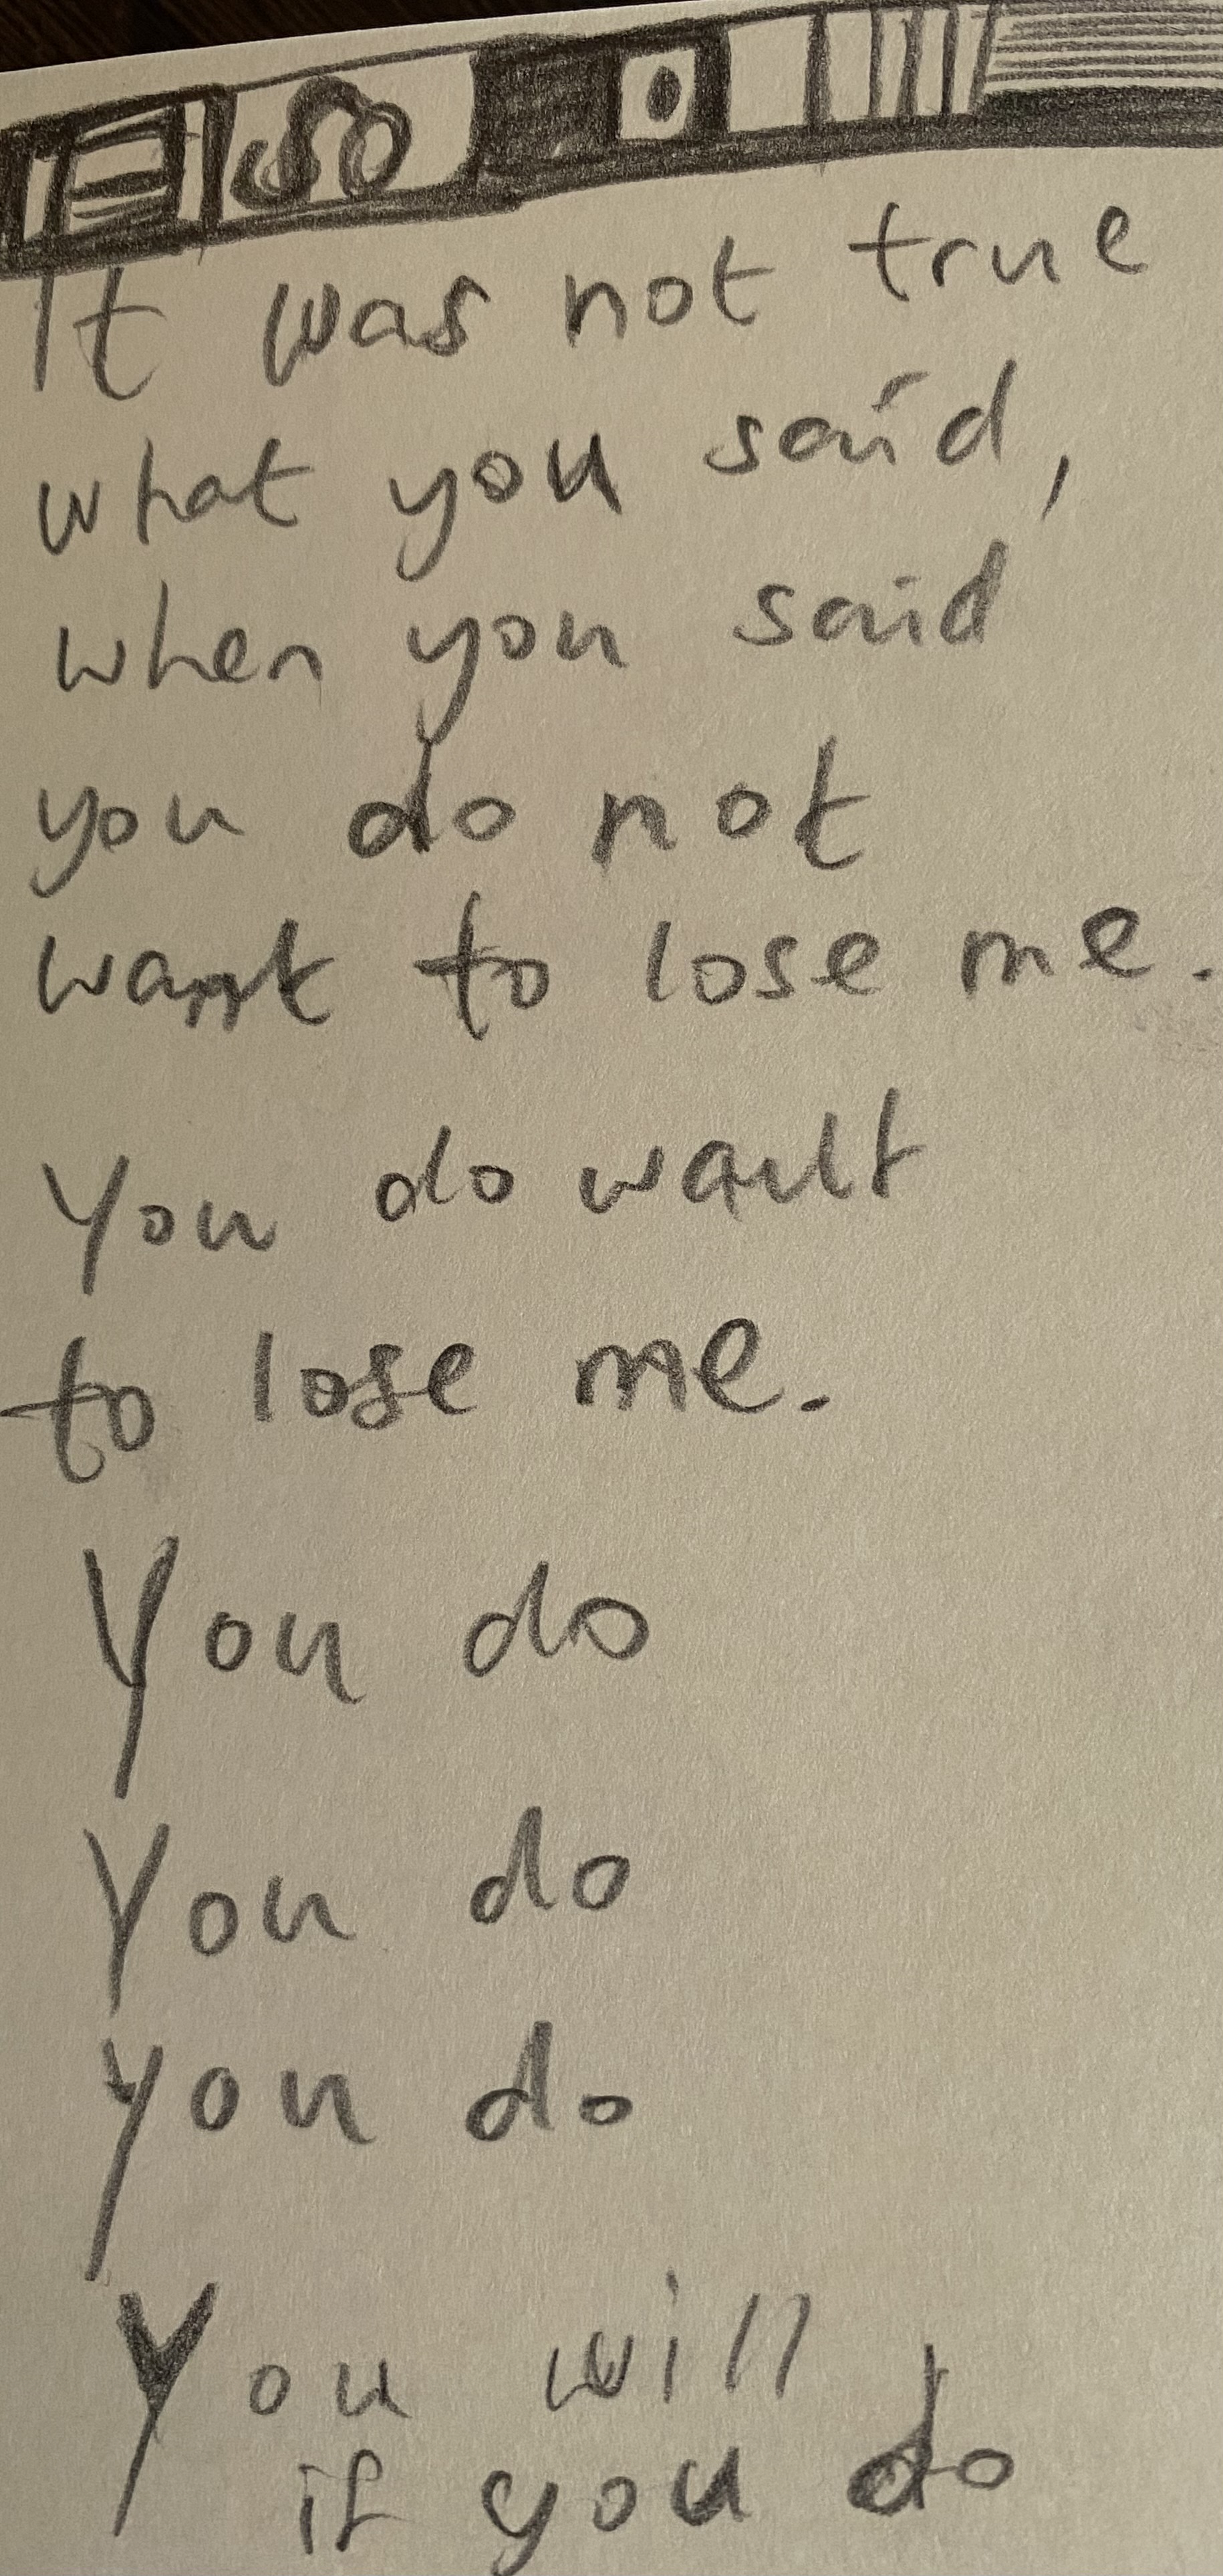 It was not true
what you said,
when you said
you do not
want to lose me.
You do want
to lose me.
You do
You do
you do
You will
if you do